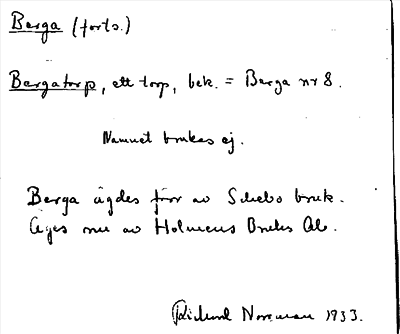 Berga (forts.)
Bergatorp, ett torp, bek. = Berga nr 8.
Namnet brukas ej.
Berga ägdes förr av Skebo bruk.
Äges nu av Holmens Bruks Ab.
Rickard Noreman 1933.